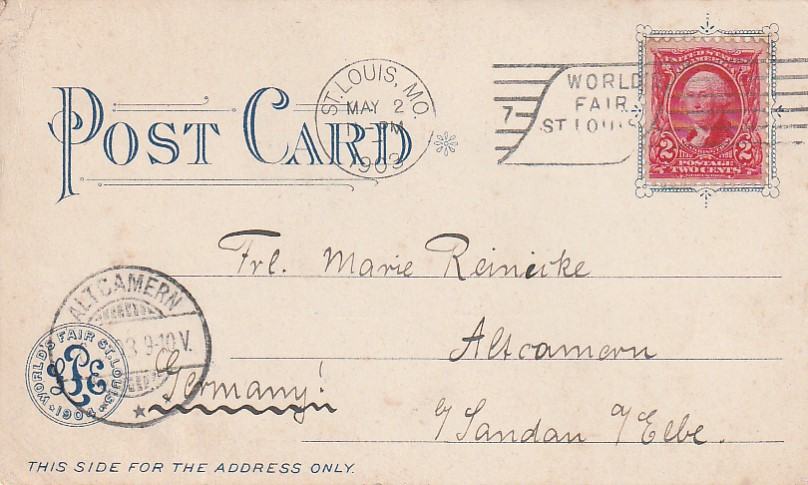 POST CARD
ST. LOUIS, MO.
MAY 2
-PM
1903
7
WORLD'S
FAIR
ST LOUIS
UNITED STATES
OF AMERICA
2 2
POSTAGE
TWO CENTS
Frl. Marie Reinicke
Altcamern
Germany!
b/ Sandau a/Elbe.
ALTCAMERN
3 9-10 V.
WORLD'S FAIR ST. LOUIS
LPE
1904
THIS SIDE FOR THE ADDRESS ONLY.